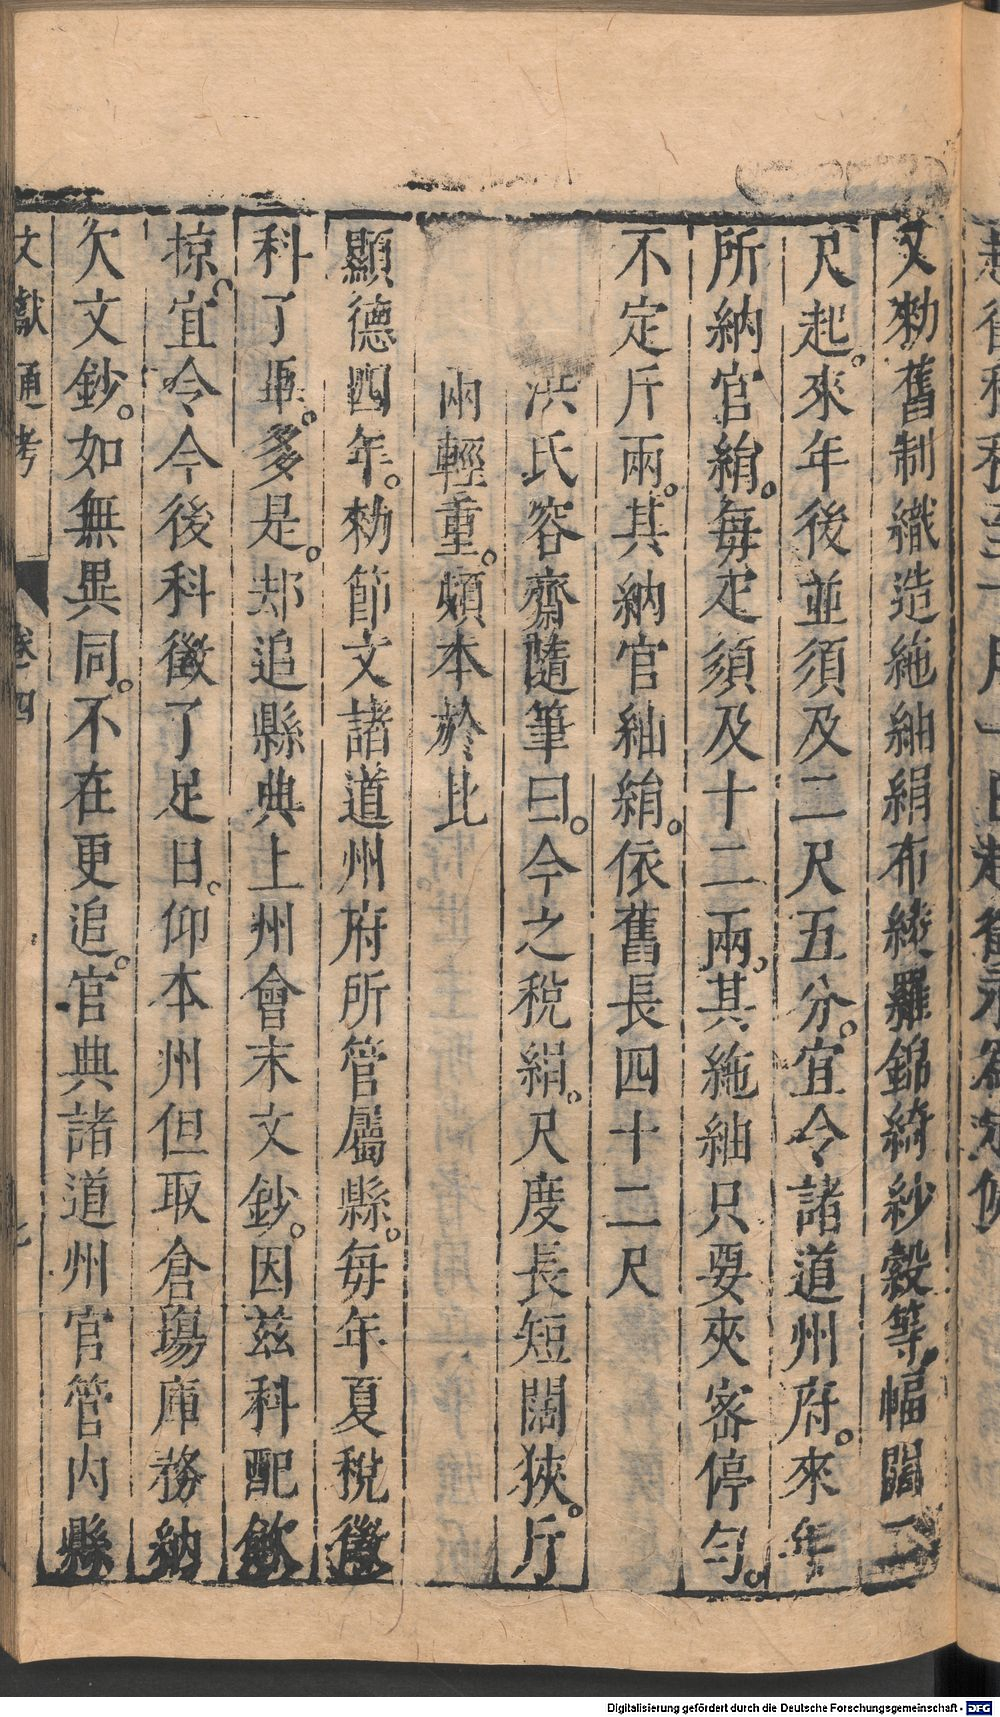 又勑舊制織造絁紬絹布綾羅錦綺紗縠等幅闊二
尺起。來年後並須及二尺五分。宜令諸道州府。來年
所納官絹。每疋須及十二兩。其絁紬只要夾密停勻。
不定斤兩。其納官紬絹。依舊長四十二尺
洪氏容齋隨筆曰。今之稅絹。尺度長短闊狹。斤
兩輕重。頗本於此
顯德四年。勑節文諸道州府所管屬縣。每年夏稅徵
科了畢。多是。却追縣典上州會末文鈔。因兹科配斂
掠。宜令今後科徵了足日。仰本州但取倉塲庫務納
欠文鈔。如無異同。不在更追。官典諸道州官管內縣
文獻通考 卷四 七
Digitalisierung gefördert durch die Deutsche Forschungsgemeinschaft - DFG